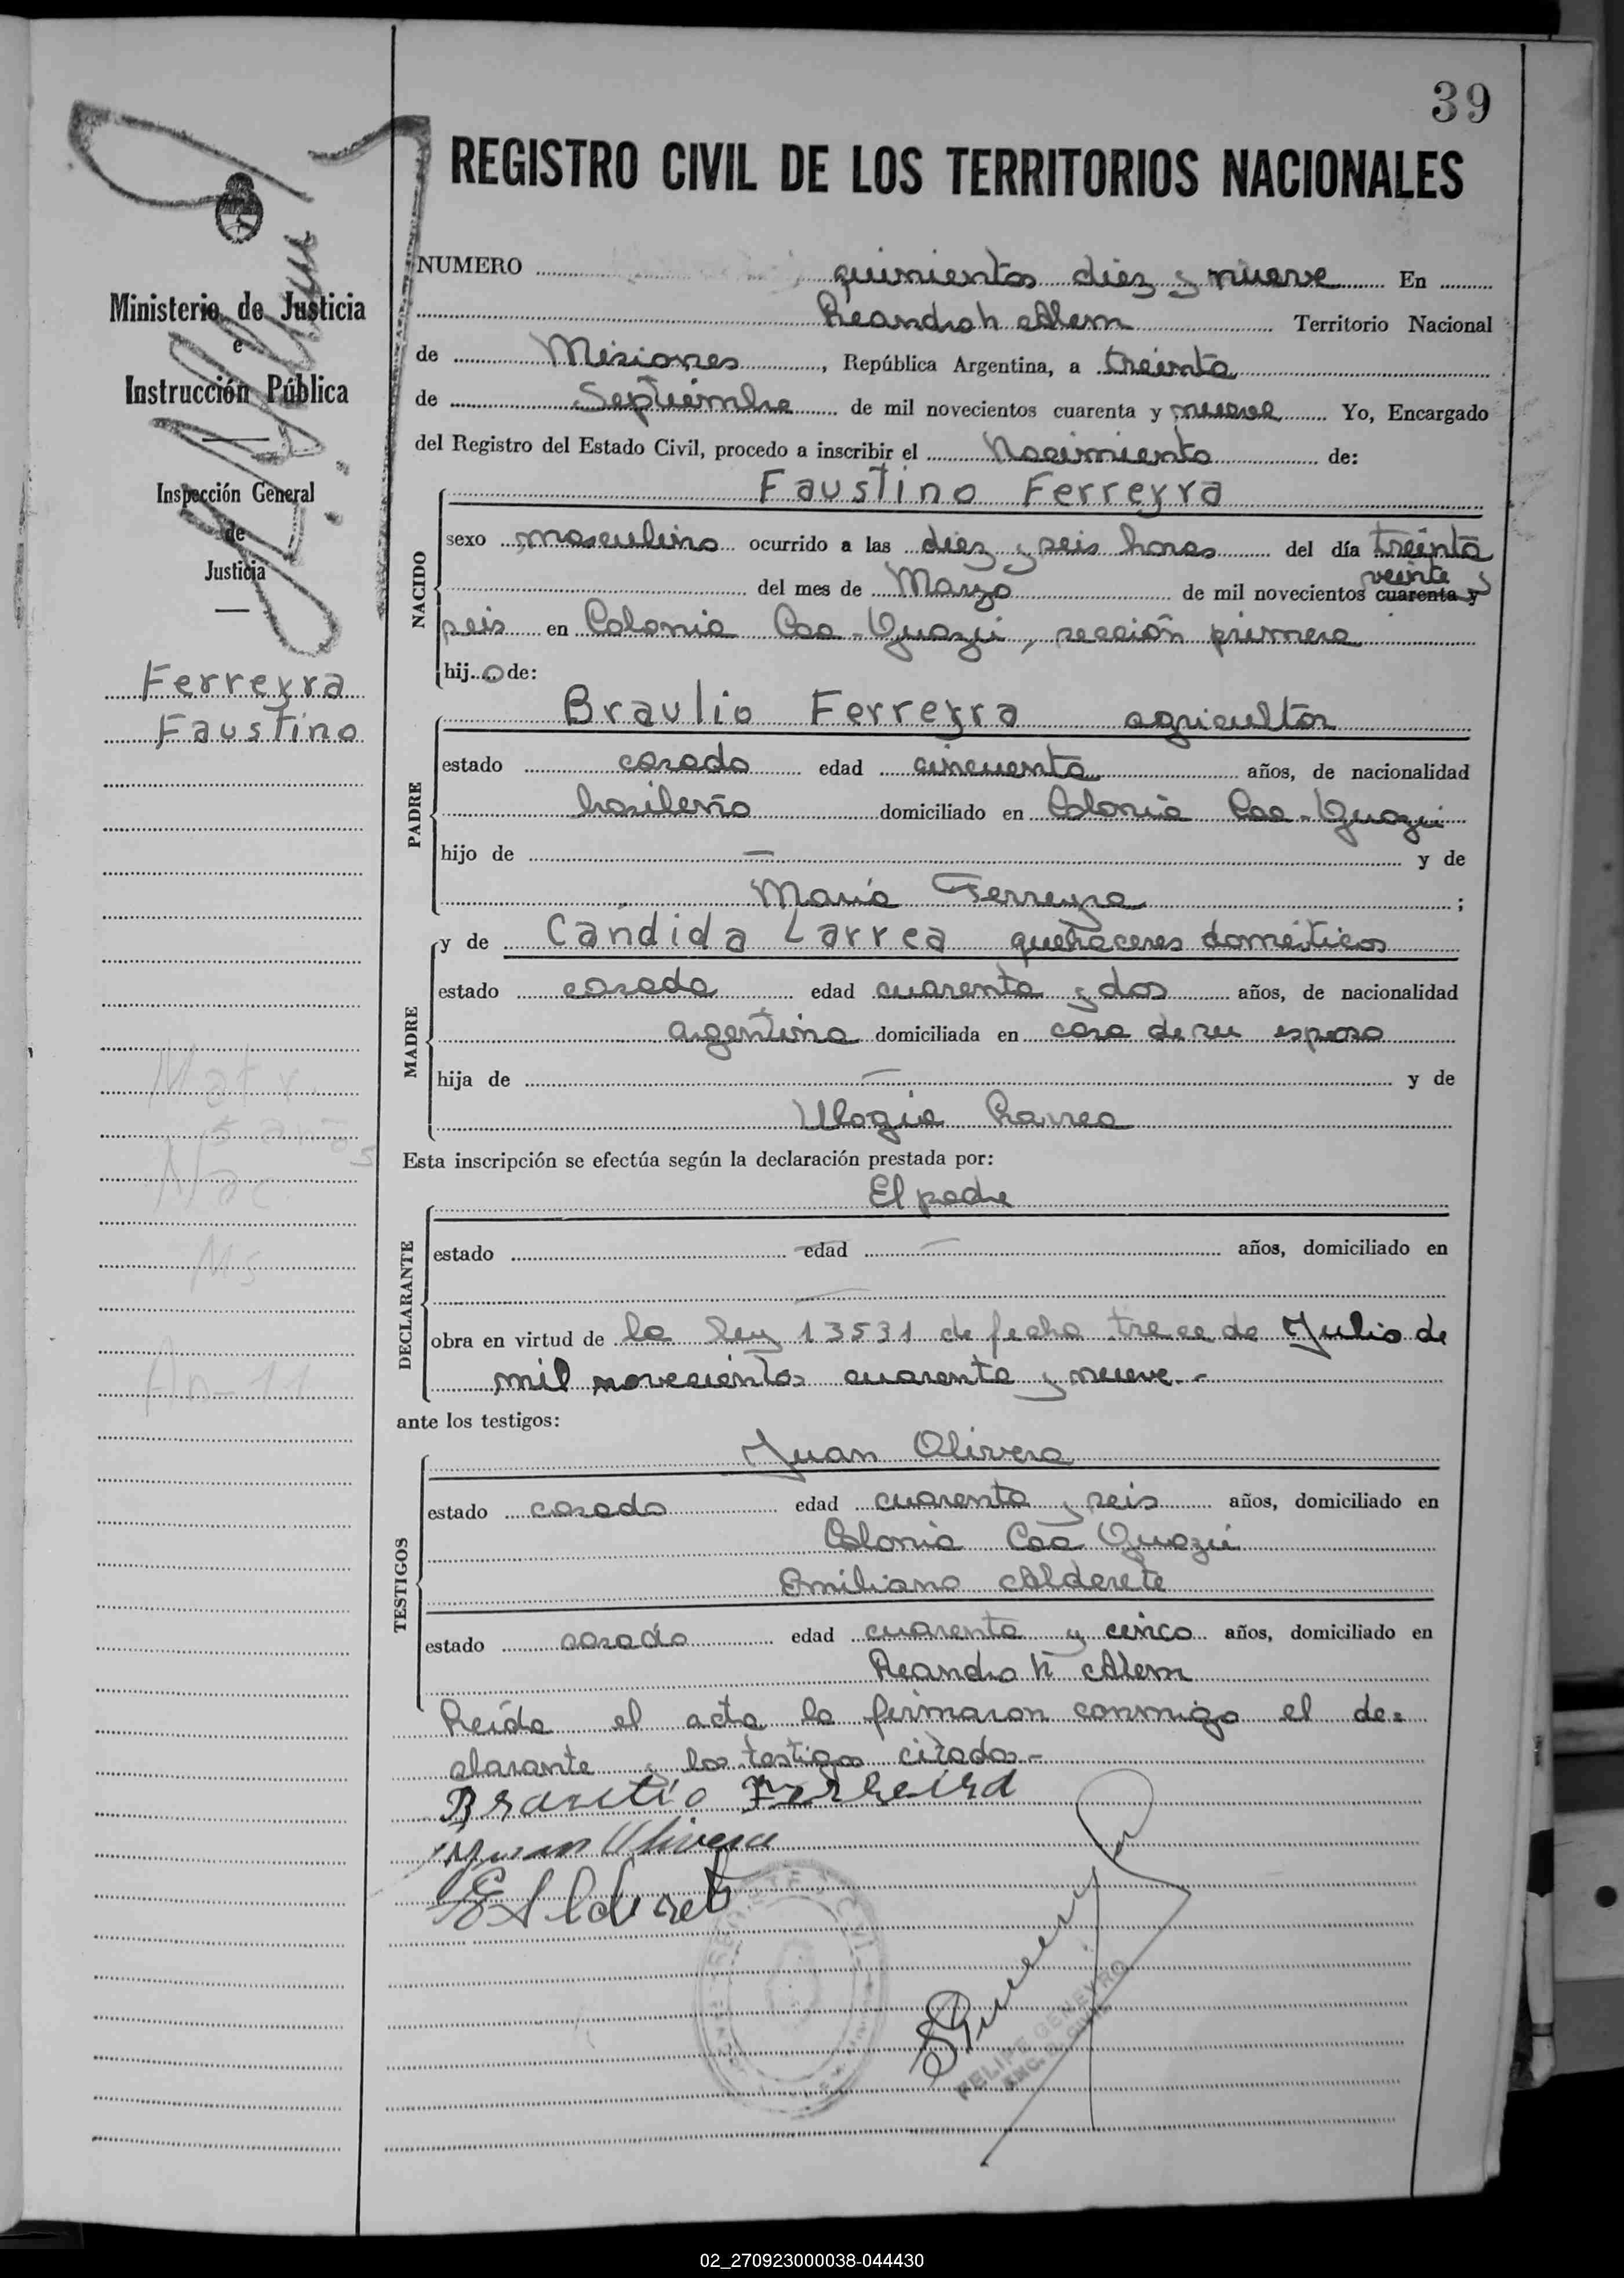 39
REGISTRO CIVIL DE LOS TERRITORIOS NACIONALES
Ministerio de Justicia
e
Instrucción Pública
Inspección General
de
Justicia
Ferreyra
Faustino
NUMERO quinientos diez y nueve En
Leandro N Alem Territorio Nacional
de Misiones, República Argentina, a treinta
de Septiembre de mil novecientos cuarenta y nueve Yo, Encargado
del Registro del Estado Civil, procedo a inscribir el Nacimiento de:
NACIDO
Faustino Ferreyra
sexo masculino ocurrido a las diez y seis horas del día treinta
veinte y
del mes de Marzo de mil novecientos cuarenta y
seis en Colonia Caa-Guazú, sección primera
hijo de:
PADRE
Braulio Ferreyra agricultor
estado casado edad cincuenta años, de nacionalidad
brasileño domiciliado en Colonia Caa-Guazú
hijo de — y de
María Ferreyra ;
MADRE
y de Cándida Larrea quehaceres domésticos
estado casada edad cuarenta y dos años, de nacionalidad
argentina domiciliada en casa de su esposo
hija de — y de
Ulogia Larrea
Esta inscripción se efectúa según la declaración prestada por:
DECLARANTE
El padre
estado — edad — años, domiciliado en
—
obra en virtud de la ley 13531 de fecha trece de Julio de
mil novecientos cuarenta y nueve.-
ante los testigos:
TESTIGOS
Juan Olivera
estado casado edad cuarenta y seis años, domiciliado en
Colonia Caá Guazú
Emiliano Alderete
estado casado edad cuarenta y cinco años, domiciliado en
Leandro N Alem
Leída el acta la firmaron conmigo el de=
clarante y los testigos citados-
Braulio Ferreira
Juan Olivera
E Alderete
FELIPE GENEYRO
ENC. R. CIVIL
Matr.
5 años
Nac.
Ms
An-11
02_270923000038-044430